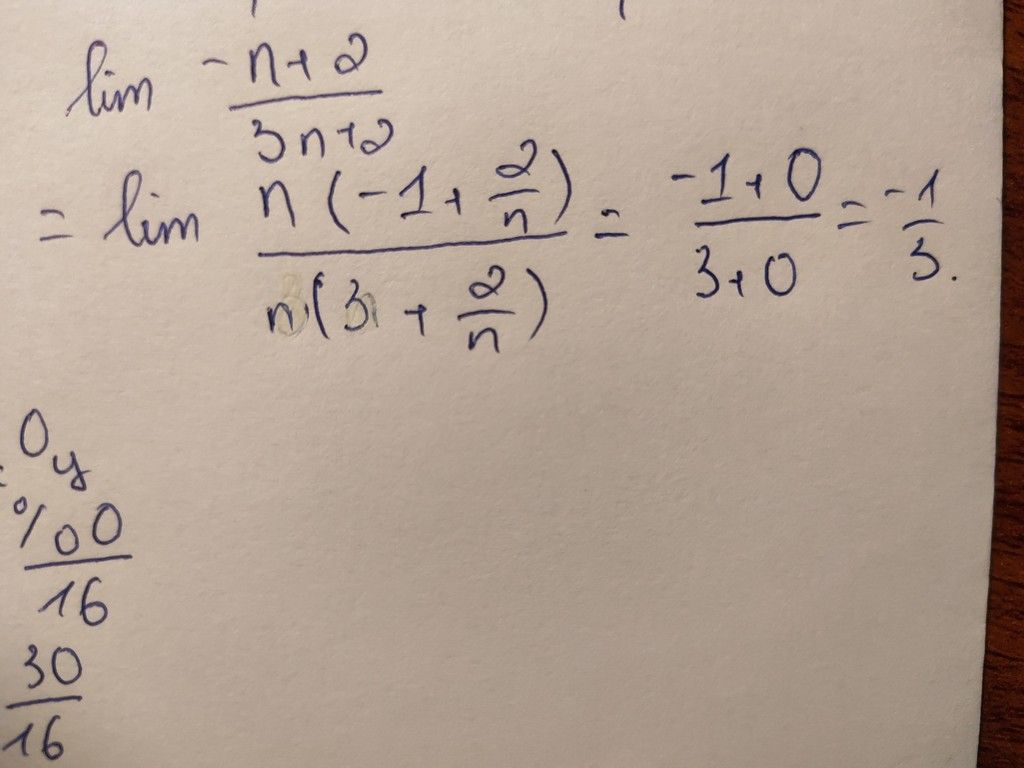 lim -n+2 / 3n+2
= lim n(-1+2/n) / n(3+2/n) = -1+0 / 3+0 = -1/3.
Oy
%00 / 16
30 / 16